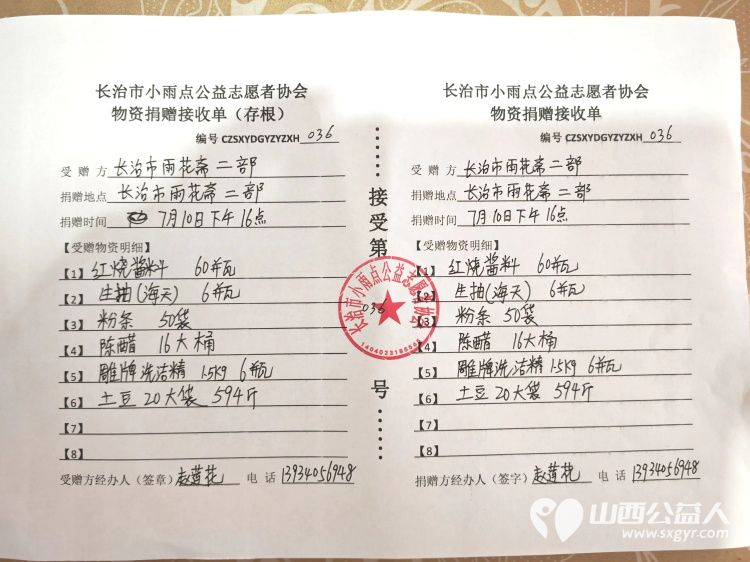 长治市小雨点公益志愿者协会
物资捐赠接收单（存根）
编号 CZSXYDGYZYZXH 036
受赠方 长治市雨花斋二部
捐赠地点 长治市雨花斋二部
捐赠时间 7月10日下午16点
【受赠物资明细】
【1】红烧酱料 60并瓦
【2】生抽(海天) 6并瓦
【3】粉条 50袋
【4】陈醋 16大桶
【5】雕牌洗洁精 1.5kg 6并瓦
【6】土豆20大袋 594斤
【7】
【8】
受赠方经办人（签章）赵莲花 电话 13934056948
接受第
036
号
长治市小雨点公益志愿者协会
长治市小雨点公益志愿者协会
物资捐赠接收单
编号 CZSXYDGYZYZXH 036
受赠方 长治市雨花斋二部
捐赠地点 长治市雨花斋二部
捐赠时间 7月10日下午16点
【受赠物资明细】
【1】红烧酱料 60并瓦
【2】生抽(海天) 6并瓦
【3】粉条 50袋
【4】陈醋 16大桶
【5】雕牌洗洁精 1.5kg 6并瓦
【6】土豆20大袋 594斤
【7】
【8】
捐赠方经办人（签字）赵莲花 电话 13934056948
山西公益人
www.sxgyr.com